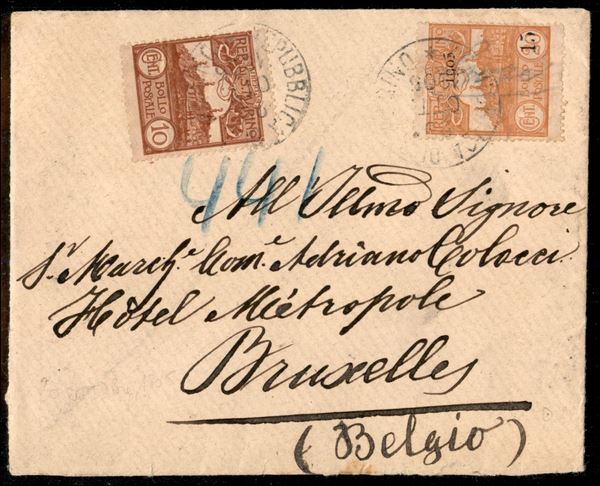 CENT BOLLO POSTALE 10
REP. DI S. MARINO
REPUBBLICA
1905 15
CENT BOLLO POSTALE
441
All'Illmo Signore
Sr. March.e Com.e Adriano Colocci
Hôtel Métropole
Bruxelles
(Belgio)